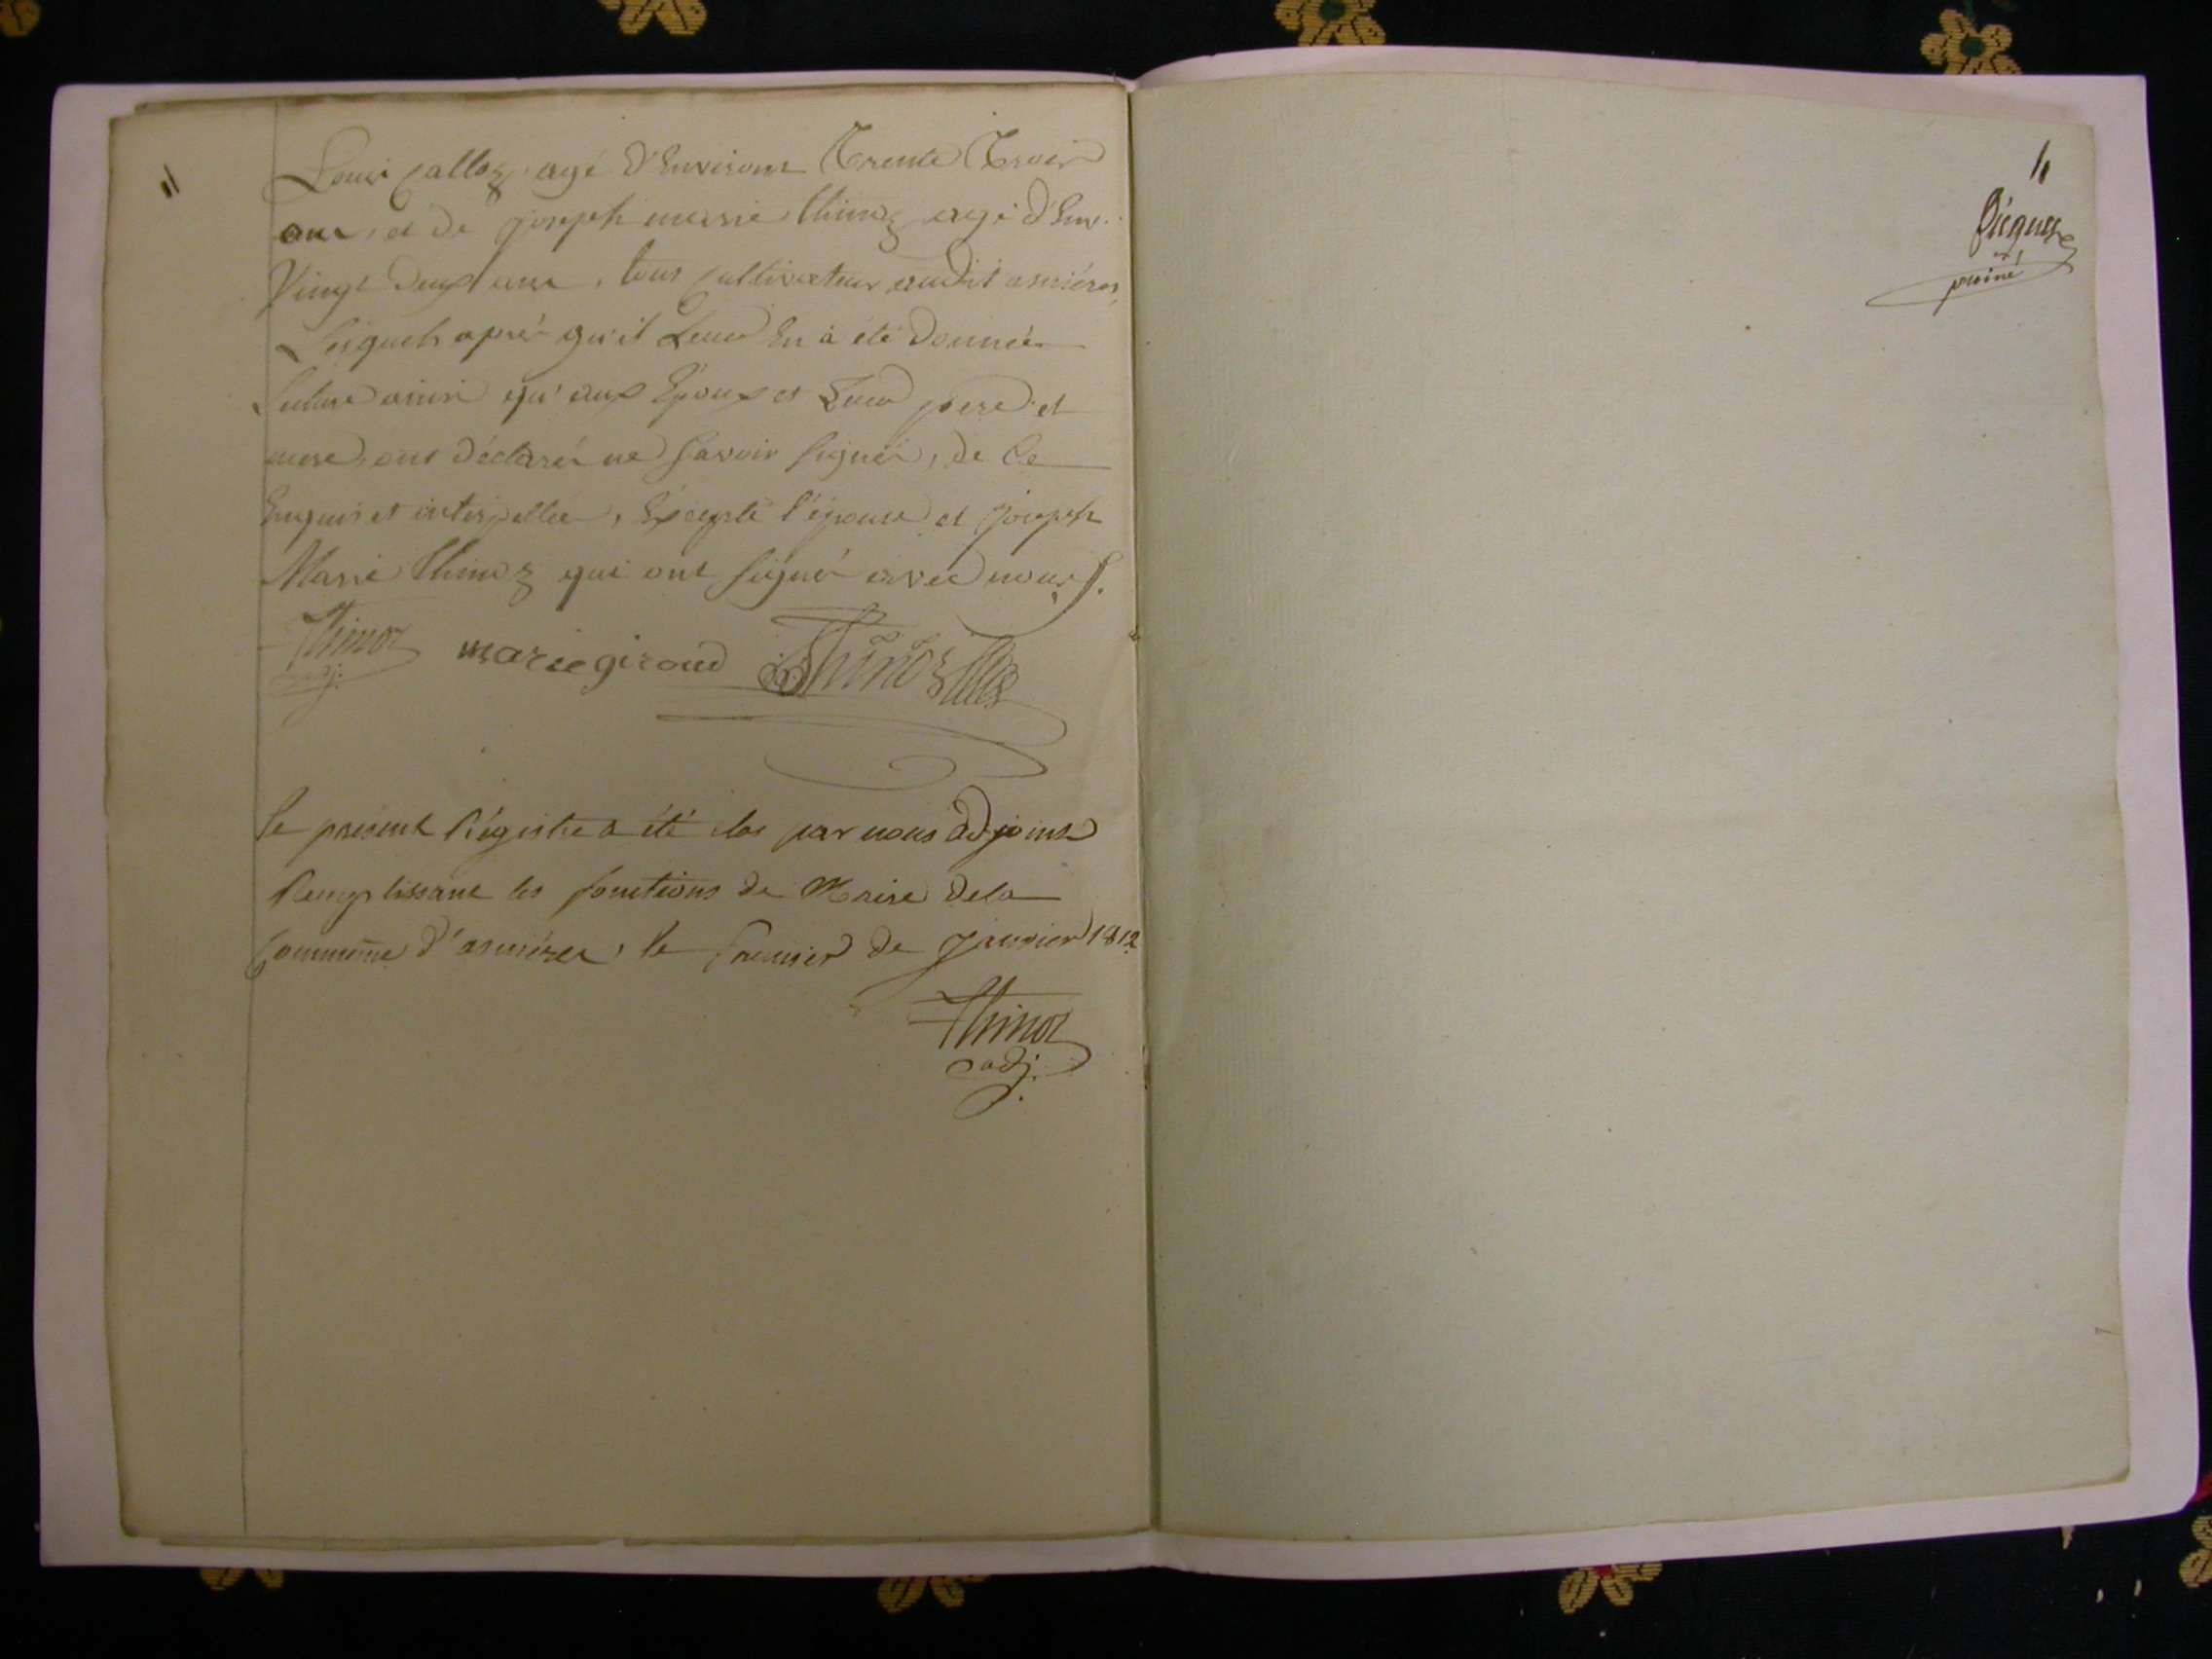 11
Louis Calloz, agé d'Environs Trente Trois
ans, et de joseph marie thinoz agé d'Env.
Vingt deux ans, tous Cultivateur audit asniéres,
Lesquels aprés qu'il Leur En à été donnés
Lecture ainsi qu'aux Epoux et Leur pere et
mere, ont déclarés ne Savoir Signér, de Ce
Enquis et interpellés, Excepté l'épouse et joseph
Marie thinoz qui ont Signér avec nous.
Thinoz marie giroud Thinoz
adj.
Le present Régistre a été clos par nous adjoint
Remplissant les fonctions de Maire dela
Commune d'asniéres, le Premier de Janvier 1812
Thinoz
adj.
11